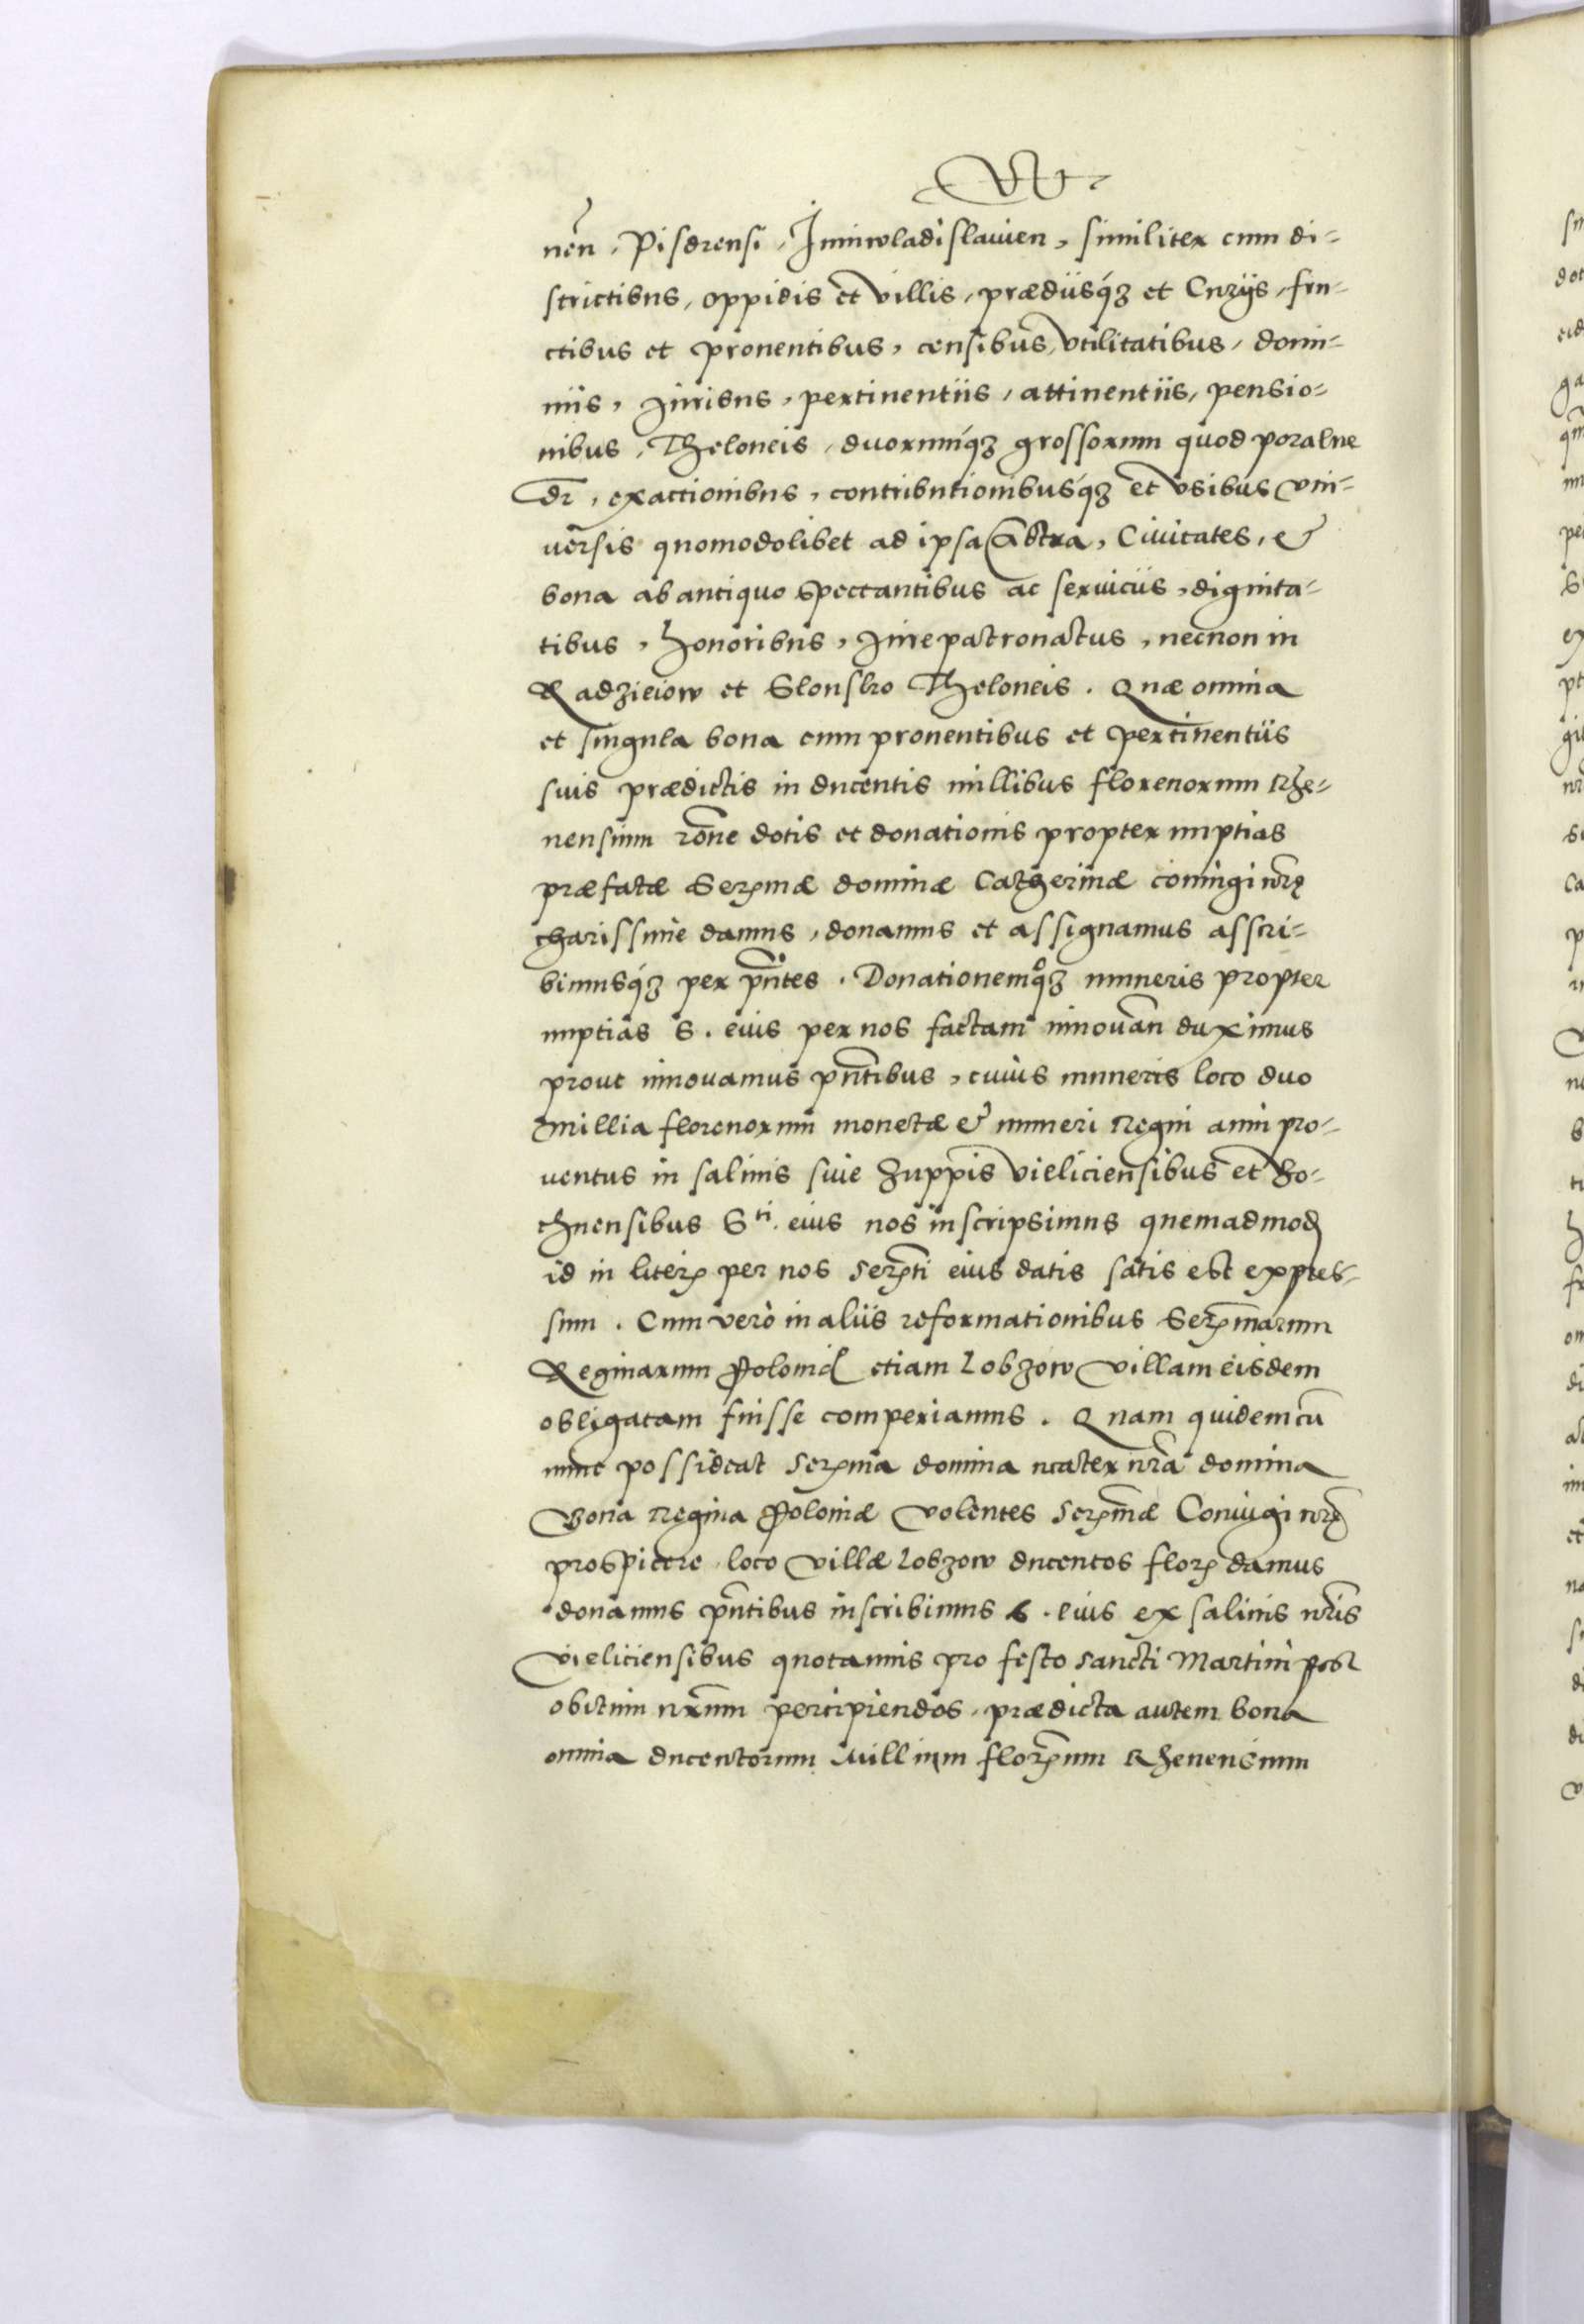 nēn, Pisdrensi, Juniwladislauien, similiter cum di-
strictibus, oppidis et villis, prædiisq́ꝫ et Curijs, fru-
ctibus et prouentibus, censibus, vtilitatibus, domi-
niis, iuribus, pertinentiis, attinentiis, pensio-
nibus, Theloneis, duorumq́ꝫ grossorum quod poralne
dr̄, exactionibus, contributionibusq́ꝫ et vsibus vni-
uersis quomodolibet ad ipsa Castra, Ciuitates, &
bona ab antiquo spectantibus ac seruiciis, dignita-
tibus, honoribus, iure patronatus, necnon in
Radzieiow et Slonsko Theloneis. Quæ omnia
et singula bona cum prouentibus et pertinentiis
suis prædictis in ducentis millibus florenorum Rhe-
nensium rōne dotis et donationis propter nuptias
præfatæ Serꝫmæ dominæ Catherinæ coniugi nrę̄
charissime damus, donamus et assignamus asscri-
bimusq́ꝫ per pn̄tes. Donationemq́ꝫ muneris propter
nuptias S. eius per nos factam innouān duximus
prout innouamus pn̄tibus, cuius muneris loco duo
millia florenorum monetæ & numeri Regni anni pro-
uentus in salinis siue Zuppis Vieliciensibus et Bo-
chnensibus S^ti. eius nos inscripsimus quemadmod
id in literꝫ per nos Serꝫti eius datis satis est expres-
sum. Cum verò in aliis reformationibus Serꝫmarum
Reginarum Poloniæ etiam Lobzow Villam eisdem
obligatam fuisse comperiamus. Quam quidem cū
nunc possideat Serꝫma domina mater nr̄a domina
Bona Regina Poloniæ Volentes Serꝫmæ Coniugi nrę̄
prospicere loco Villæ Lobzow ducentos florꝫ damus
donamus pn̄tibus inscribimus S. eius ex salinis nr̄is
Vieliciensibus quotannis pro festo Sancti Martini post
obitum nr̄um percipiendos, prædicta autem bona
omnia ducentorum Millium florꝫnum Rhenensium